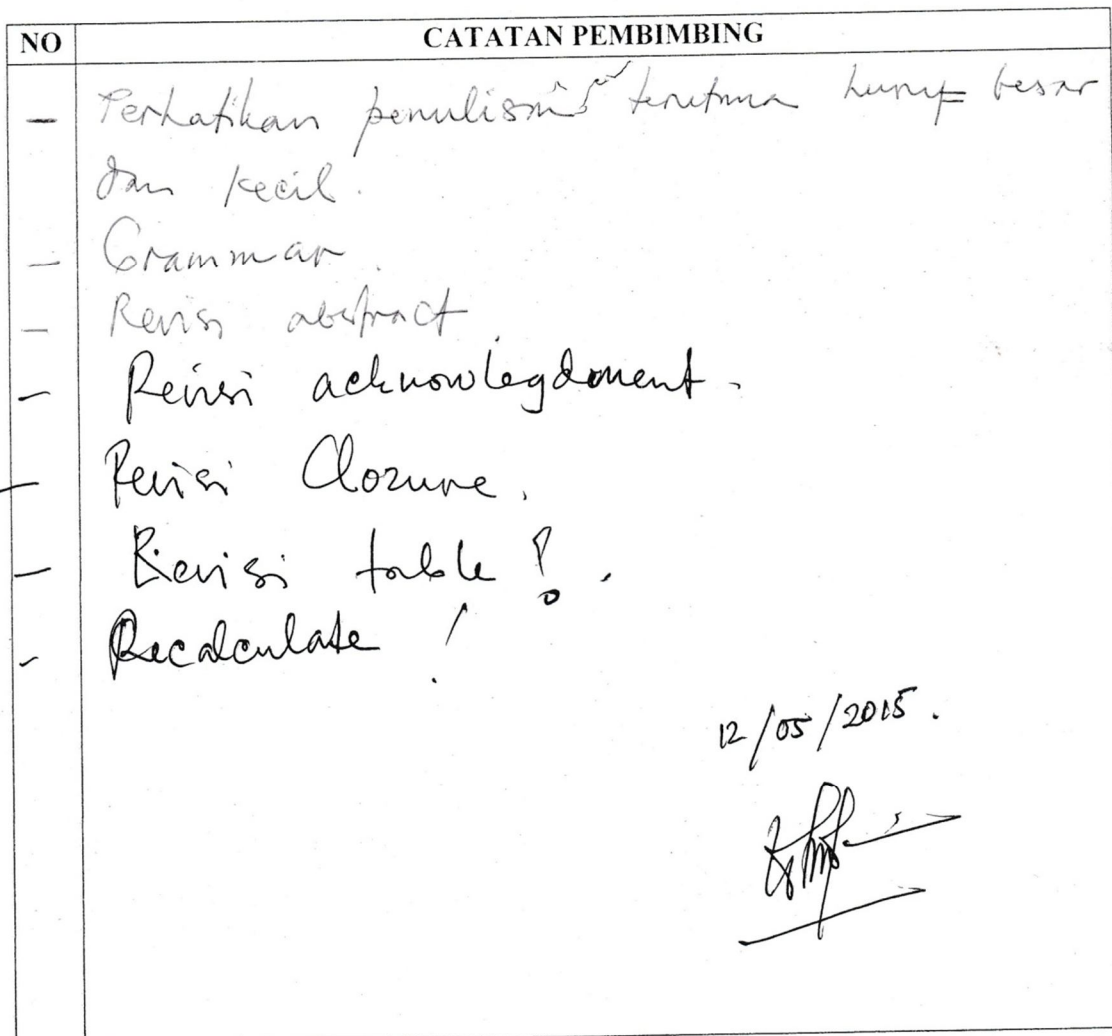 NO CATATAN PEMBIMBING
- Perhatikan penulisan terutama huruf besar
dan kecil.
- Grammar.
- Revisi abstract.
- Revisi acknowlegdment.
- Revisi Clozure.
- Revisi table!.
- Recalculate!
12/05/2015.